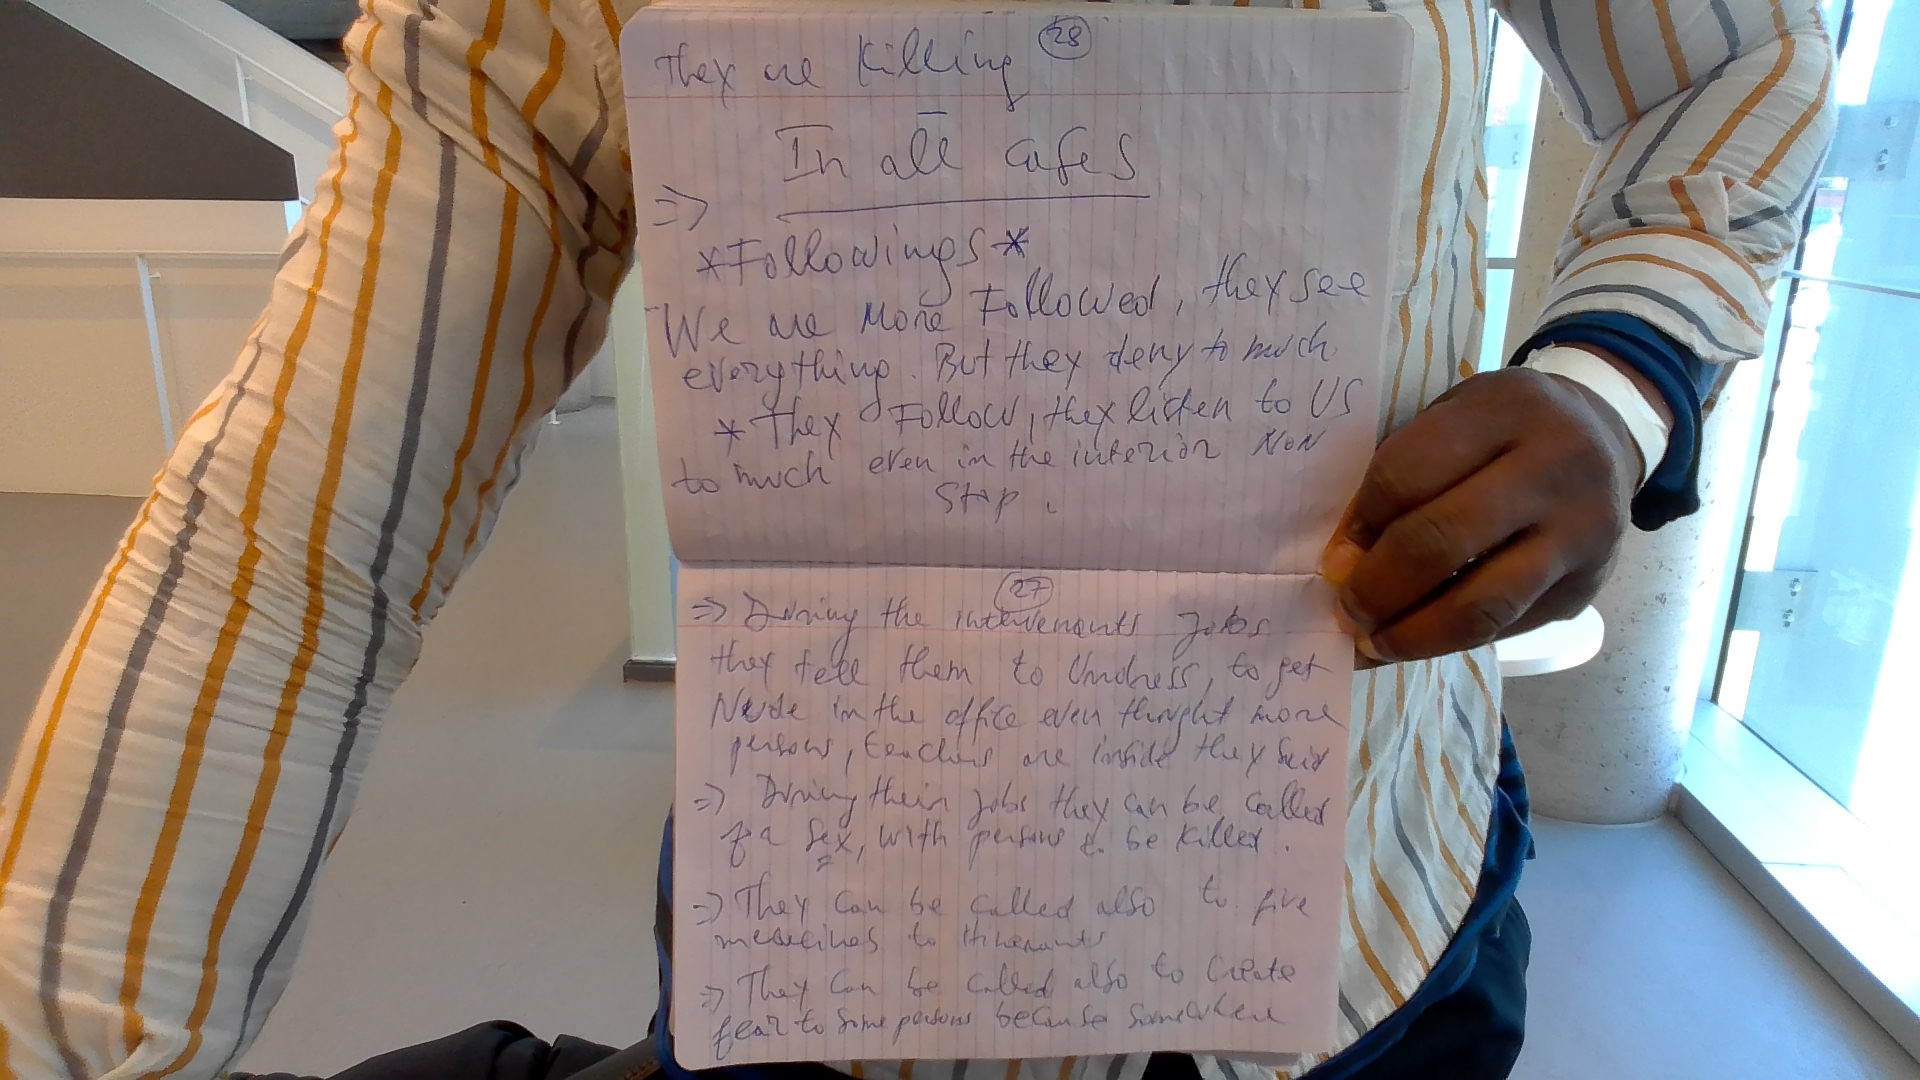 They are Killing 28
In all cases
=>
*Followings*
We are More Followed, they see
everything. But they deny to much
* They Follow, they listen to US
to much even in the interior NON
Stop.
27
=> During the intervenants Jobs
they tell them to Undress, to get
Nude in the office even thought more
persons, teachers are inside they said
=> During their Jobs they can be called
for a Sex, with persons to be killed.
=> They can be called also to give
medecines to itinerants
=> They can be called also to create
fear to some persons because somewhere